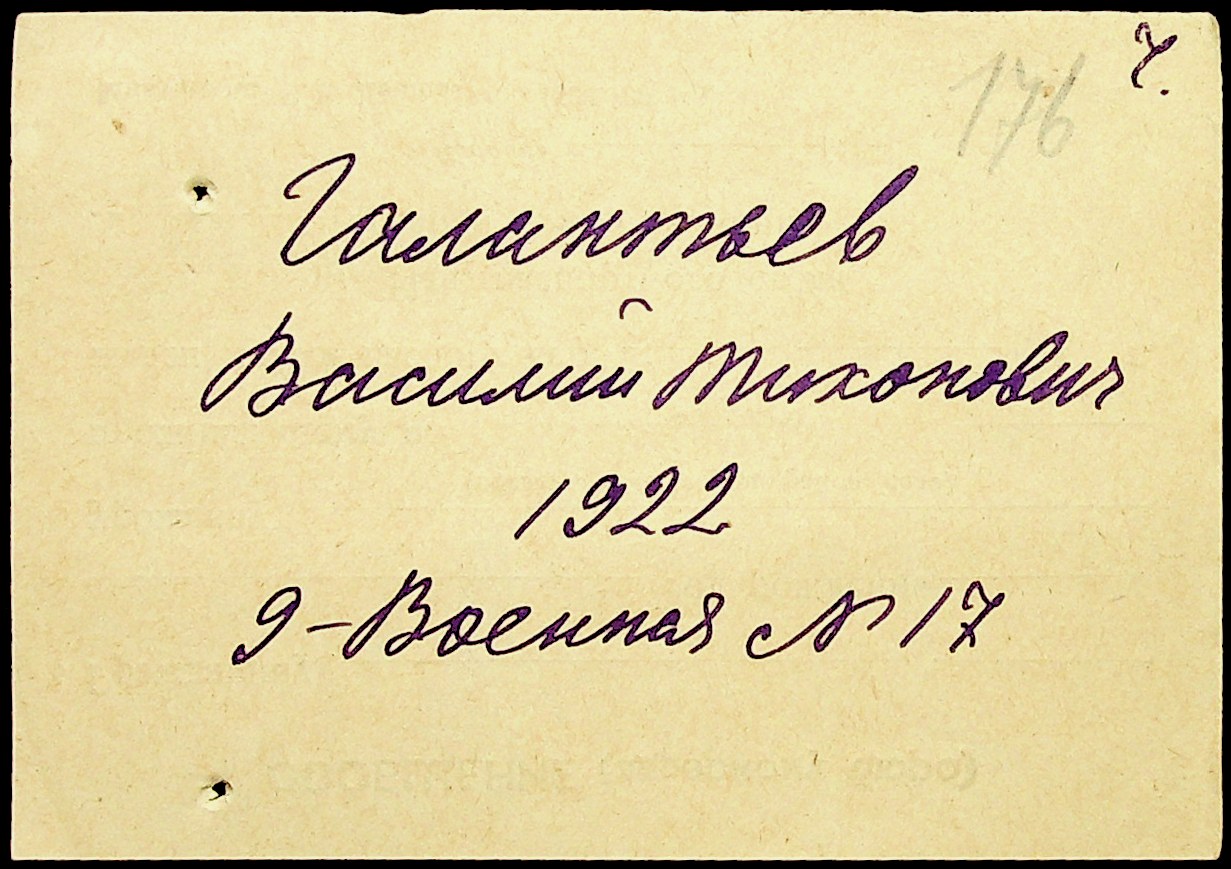 7.
176
Галантьев
Василий Тихонович
1922
9-Военная № 17